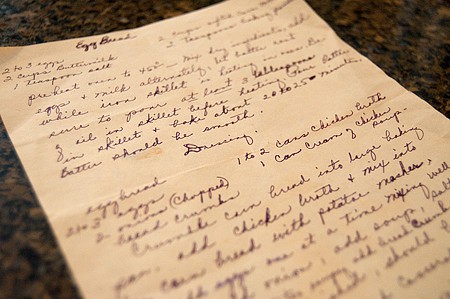 Egg Bread
2 to 3 eggs 2 cups
2 cups Buttermilk 2 Teaspoons baking
1 Teaspoon salt
preheat oven to 450° - Mix dry ingredients, add
eggs & milk alternately, let batter
while iron skillet is heating in oven. Be
sure to pour at least 3 tablespoons
of oil in skillet before heating. Pour batter
in skillet & bake about 20 to 25 minutes.
Batter should be smooth.
Dressing
1 to 2 cans chicken broth
1 can cream of chicken soup
egg bread
2 to 3 eggs
2 onions (chopped)
bread crumbs
Crumble corn bread into large baking
pan. add chicken broth & mix into
corn bread with potato masher,
add eggs one at a time mixing well
add onion, add soup,
add bread crumbs
should